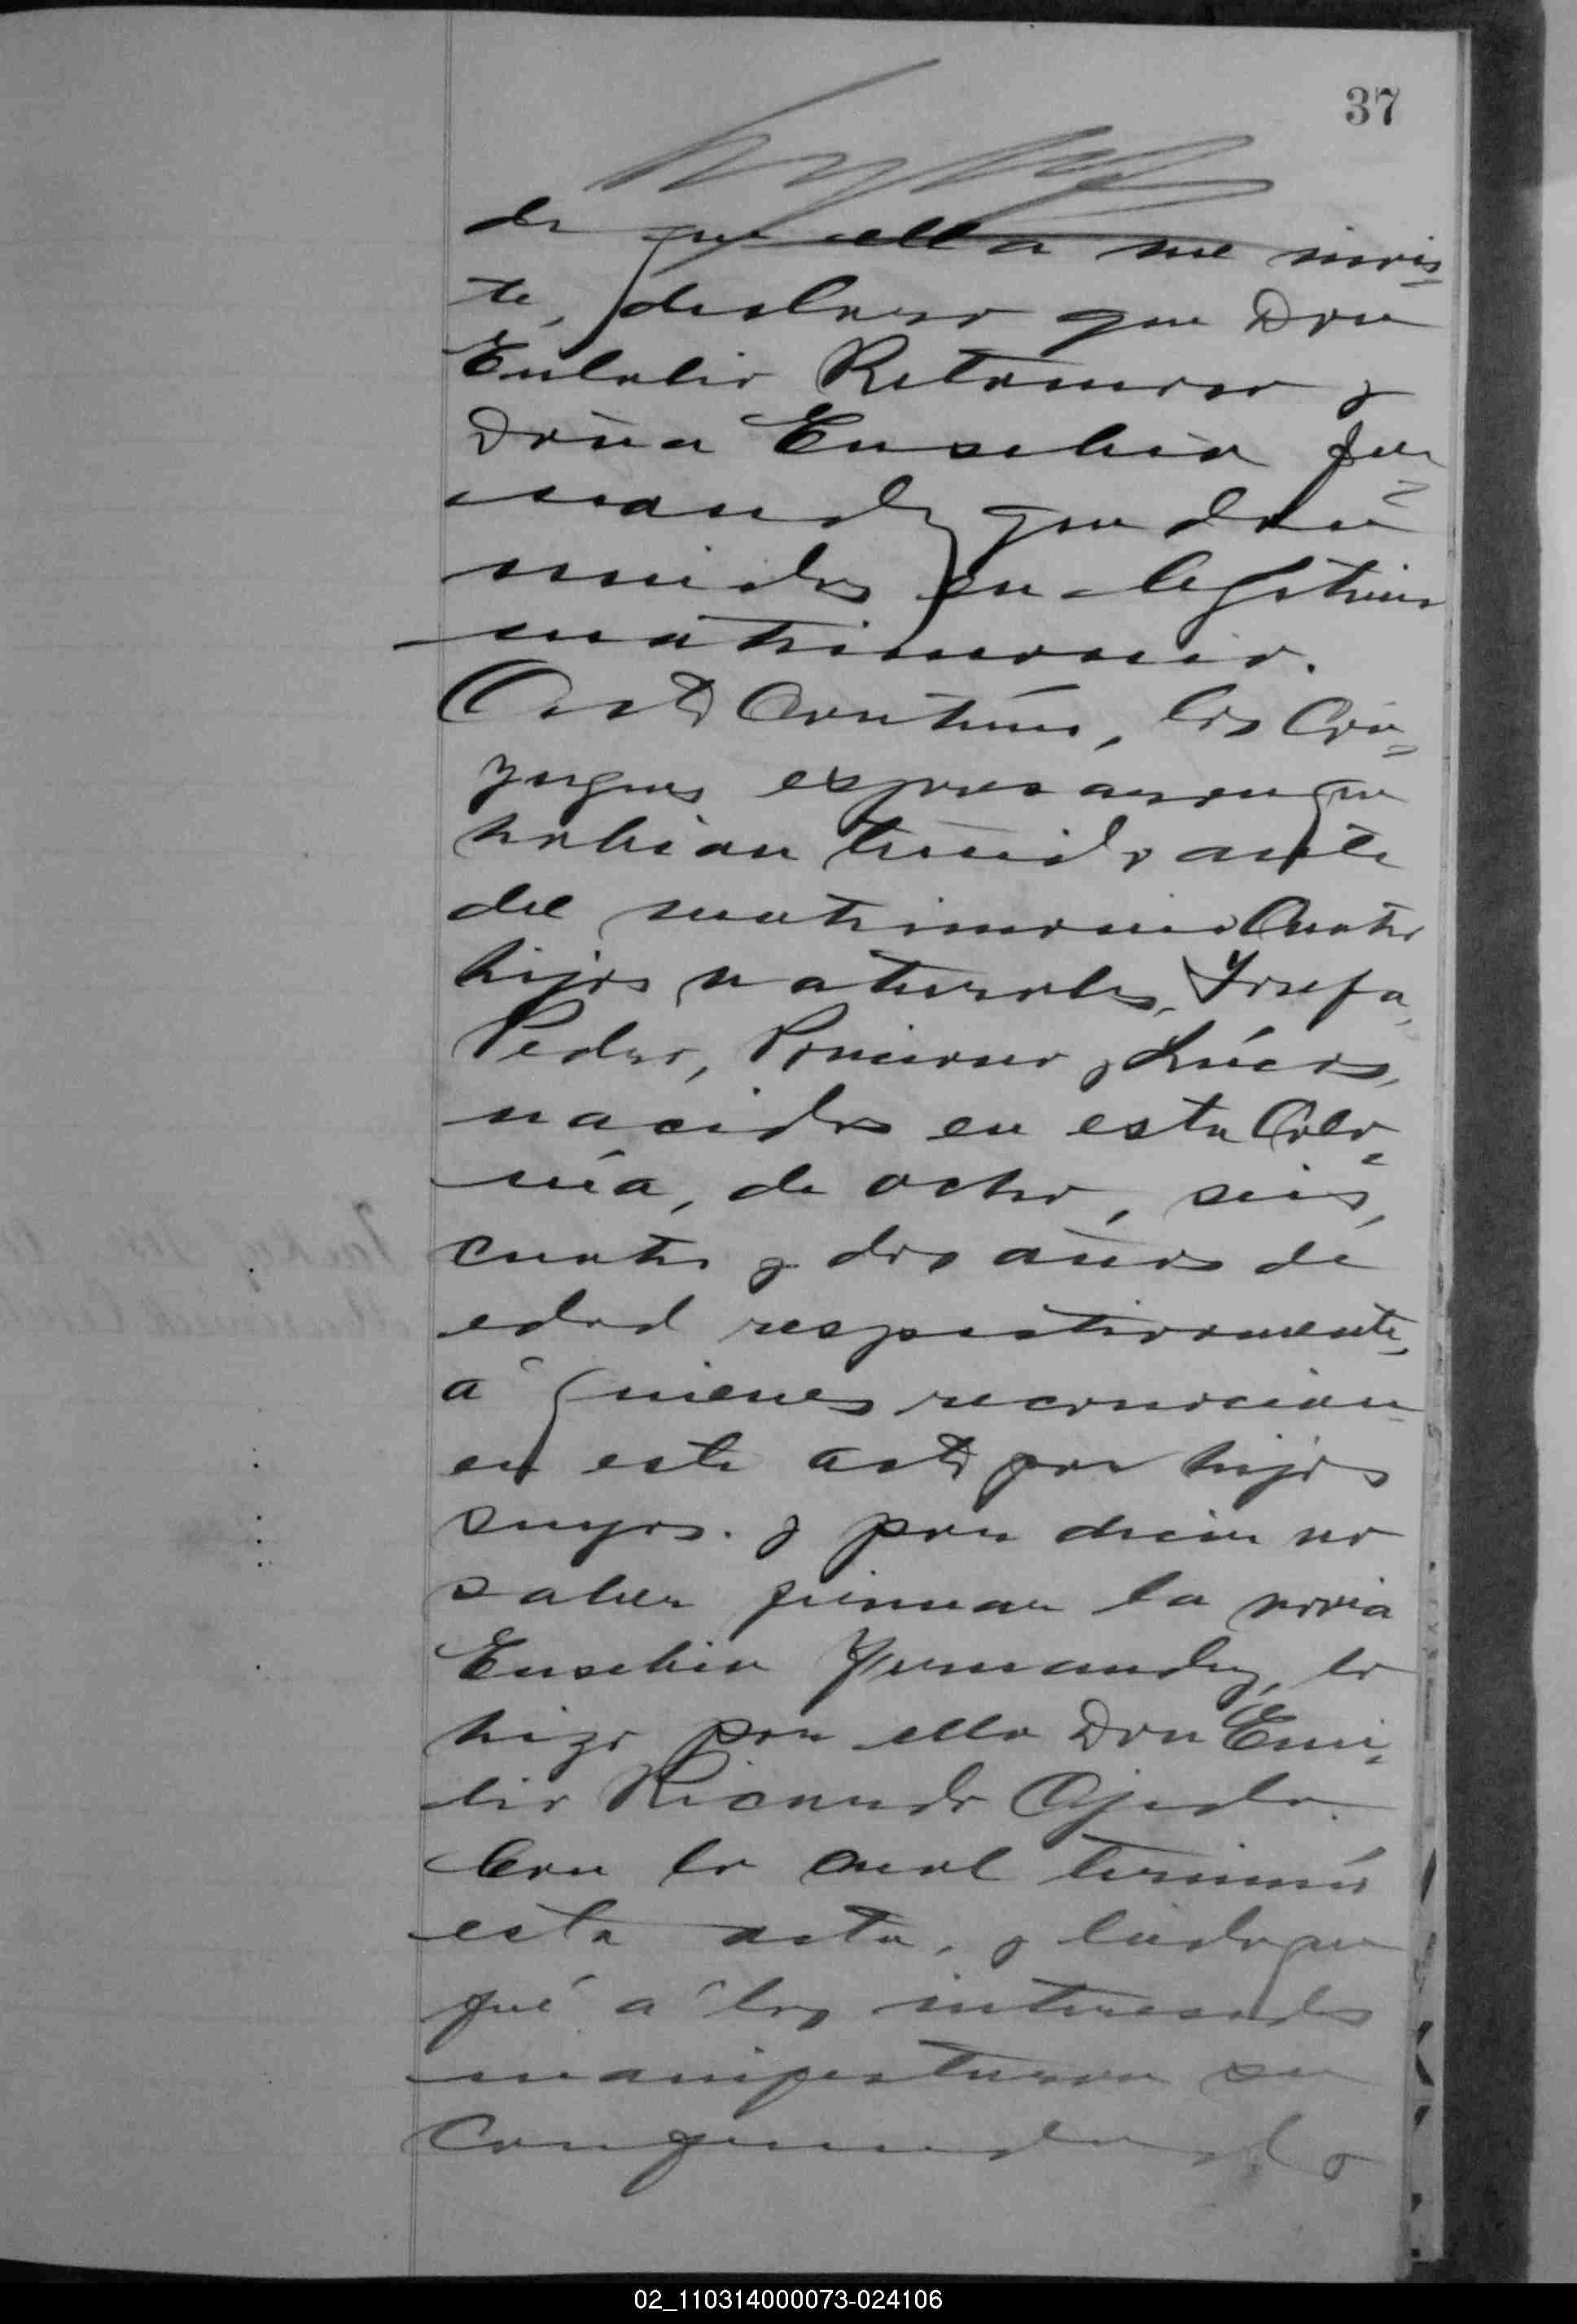 37
de que ella me invis-
te, declaro que Don
Eulalio Retamoso y
Doña Eusebia Fer-
nandez quedan
unidos en legítimo
matrimonio.
Acto contínuo, los Cón-
yuges expresaron que
habian tenido ante
del matrimonio Cuatro
hijos naturales, Josefa,
Pedro, Ponciano y Lúcas,
nacidos en esta Colo-
nia, de ocho, seis,
cuatro y dos años de
edad respectivamente,
á quienes reconocian
en este acto por hijos
suyos. y por decir no
saber firmar la novia
Eusebia Fernandez, lo
hizo por ella Don Emi-
lio Ricardo Ojeda.
Con lo cual terminó
esta acta, y leida que
fué á los interesados
manifestaron su
Conformidad
02_110314000073-024106